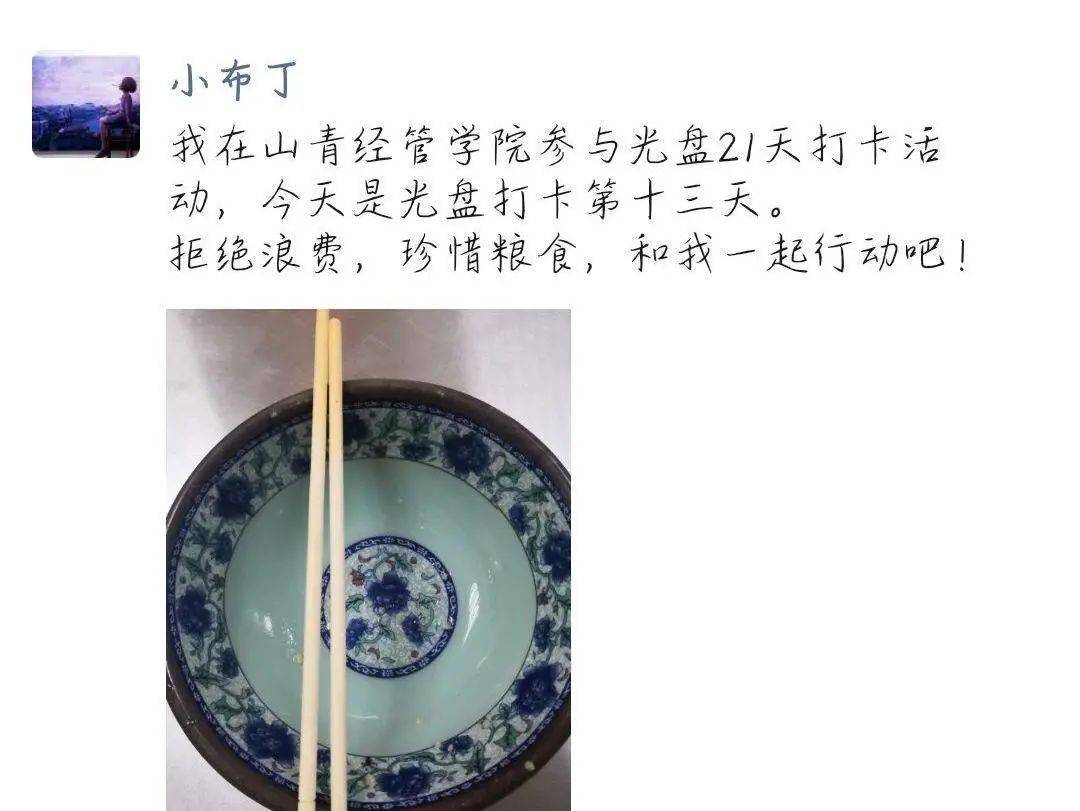 小布丁
我在山青经管学院参与光盘21天打卡活
动，今天是光盘打卡第十三天。
拒绝浪费，珍惜粮食，和我一起行动吧！